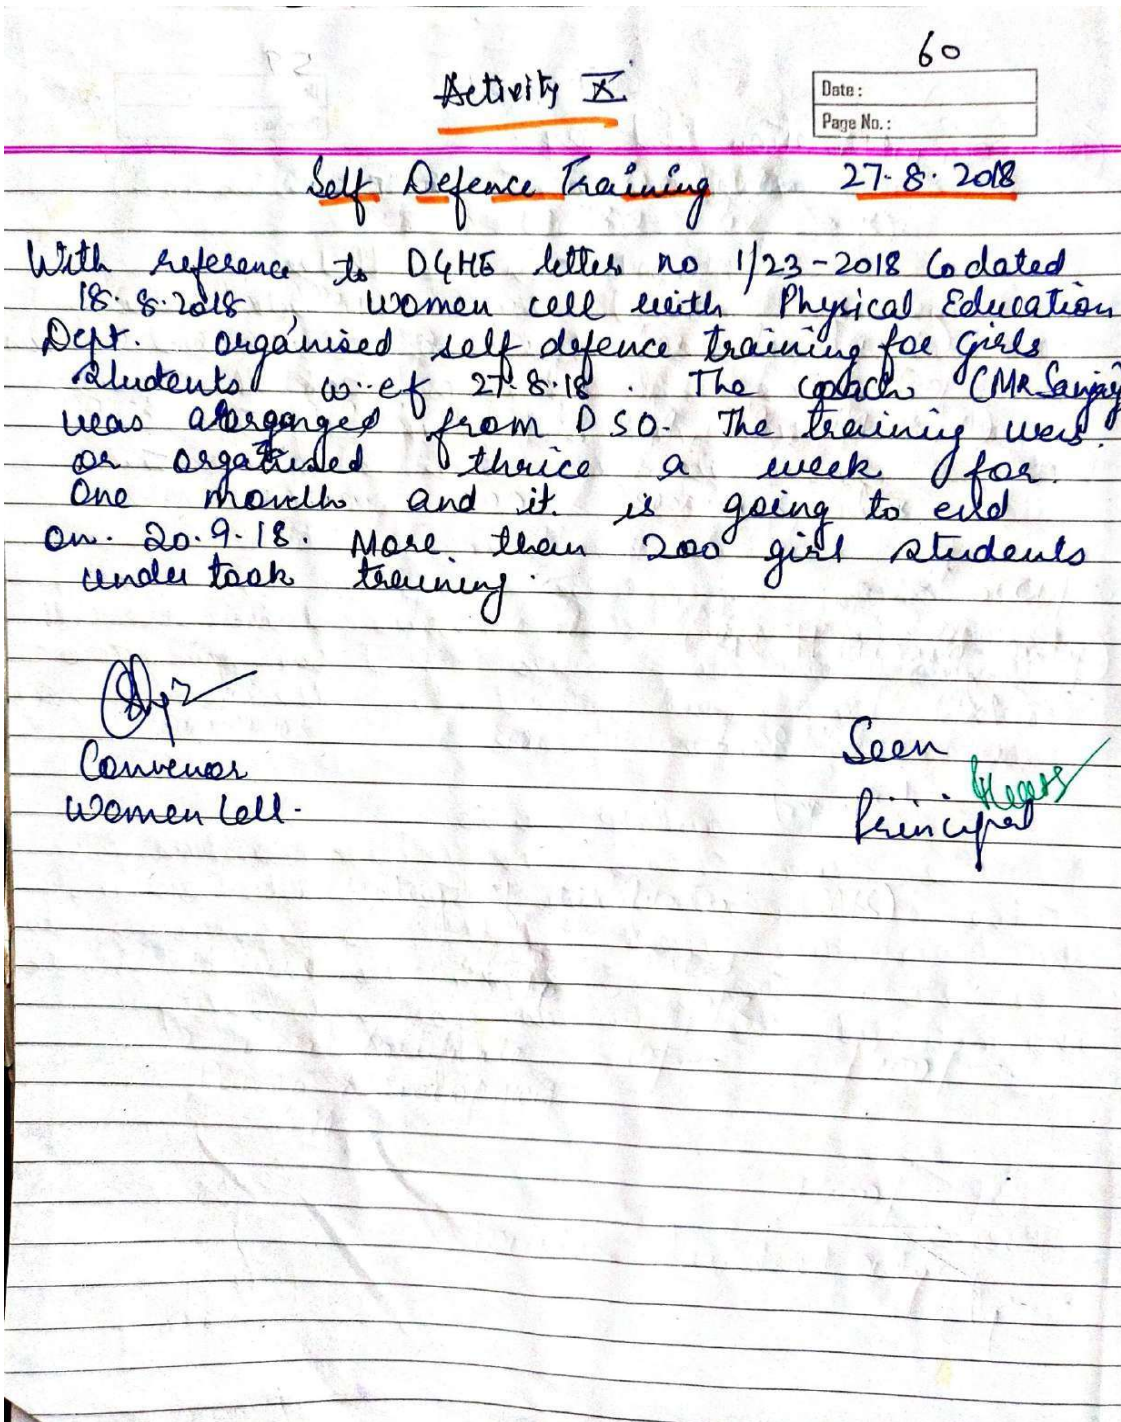 60
Activity X
Date :
Page No. :
Self Defence Training 27.8.2018
With reference to DGHE letter no 1/23-2018 Co dated
18.8.2018, women cell with Physical Education
Dept. organised self defence training for Girls
Students w.ef 27.8.18. The coach (MR Sanjay
was from DSO. The training was
or organised thrice a week for
One month and it is going to end
on. 20.9.18. More than 200 girl students
under took training.
Convenor
Women Cell.
Seen
Principal